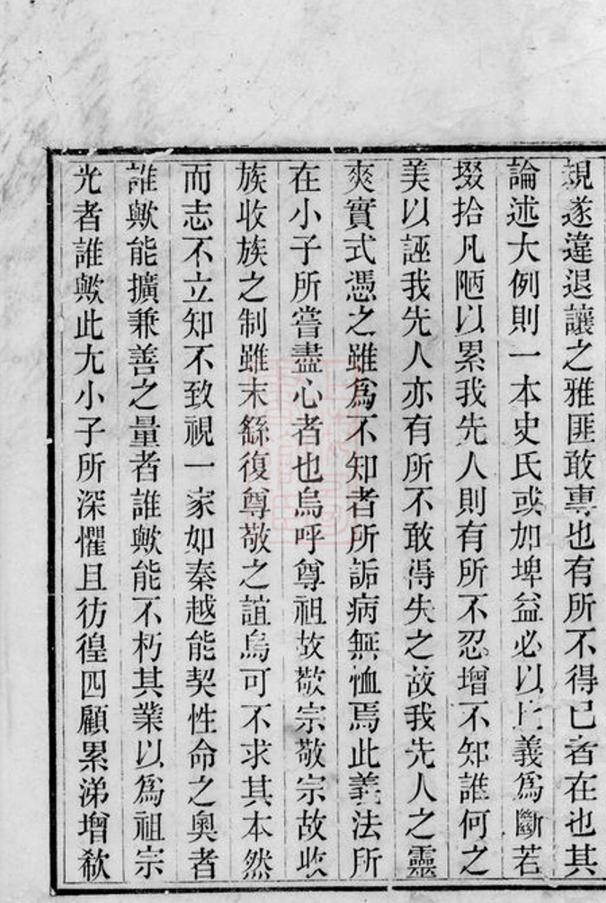 親遂違退讓之雅匪敢專也有所不得已者在也其
論述大例則一本史氏或加埤益必以上義爲斷若
掇拾凡陋以累我先人則有所不忍增不知誰何之
美以誣我先人亦有所不敢得失之故我先人之靈
爽實式憑之雖爲不知者所詬病無恤焉此義法所
在小子所嘗盡心者也烏呼尊祖故敬宗敬宗故收
族收族之制雖未繇復尊敬之誼烏可不求其本然
而志不立知不致視一家如秦越能契性命之奧者
誰歟能擴兼善之量者誰歟能不朽其業以爲祖宗
光者誰歟此尢小子所深懼且彷徨四顧累涕增欷